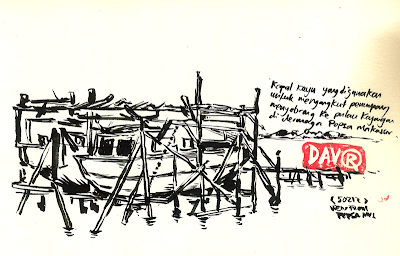 Kapal kayu yang digunakan
untuk mengangkut penumpang
menyebrang ke pulau Kayangan
di dermaga Popsa Makassar
DAV®